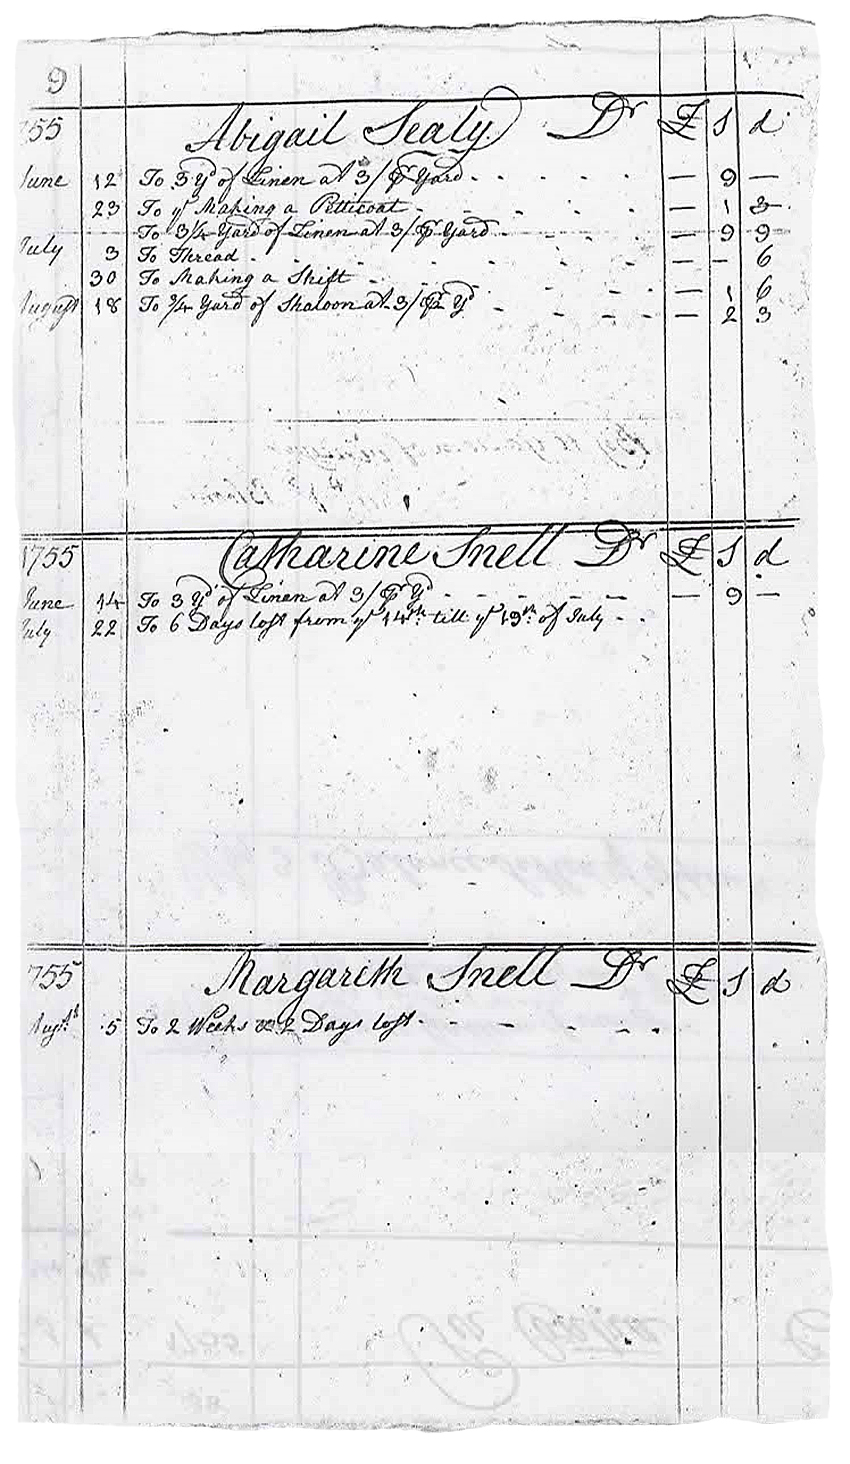 9
755 Abigail Sealy Dr £ s d
June 12 To 3 yd of Linen at 3/ pr Yard - - - - - — 9 —
23 To ye Making a Petticoat - - - - — 1 3
To 3 1/4 Yard of Linen at 3/ pr Yard - - - — 9 9
July 3 To Thread - - - - - - - — - 6
30 To Making a Shift - - - - - — 1 6
August 18 To 3/4 Yard of Shaloon at 3/ pr Yd - - - - — 2 3
1755 Catharine Snell Dr £ s d
June 14 To 3 yd of Linen at 3/ pr Yd - - - - - — 9 —
July 22 To 6 Days lost from ye 14th till ye 19th of July - -
755 Margareth Snell Dr £ s d
Augst 5 To 2 Weeks & 2 Days lost - - - - - -